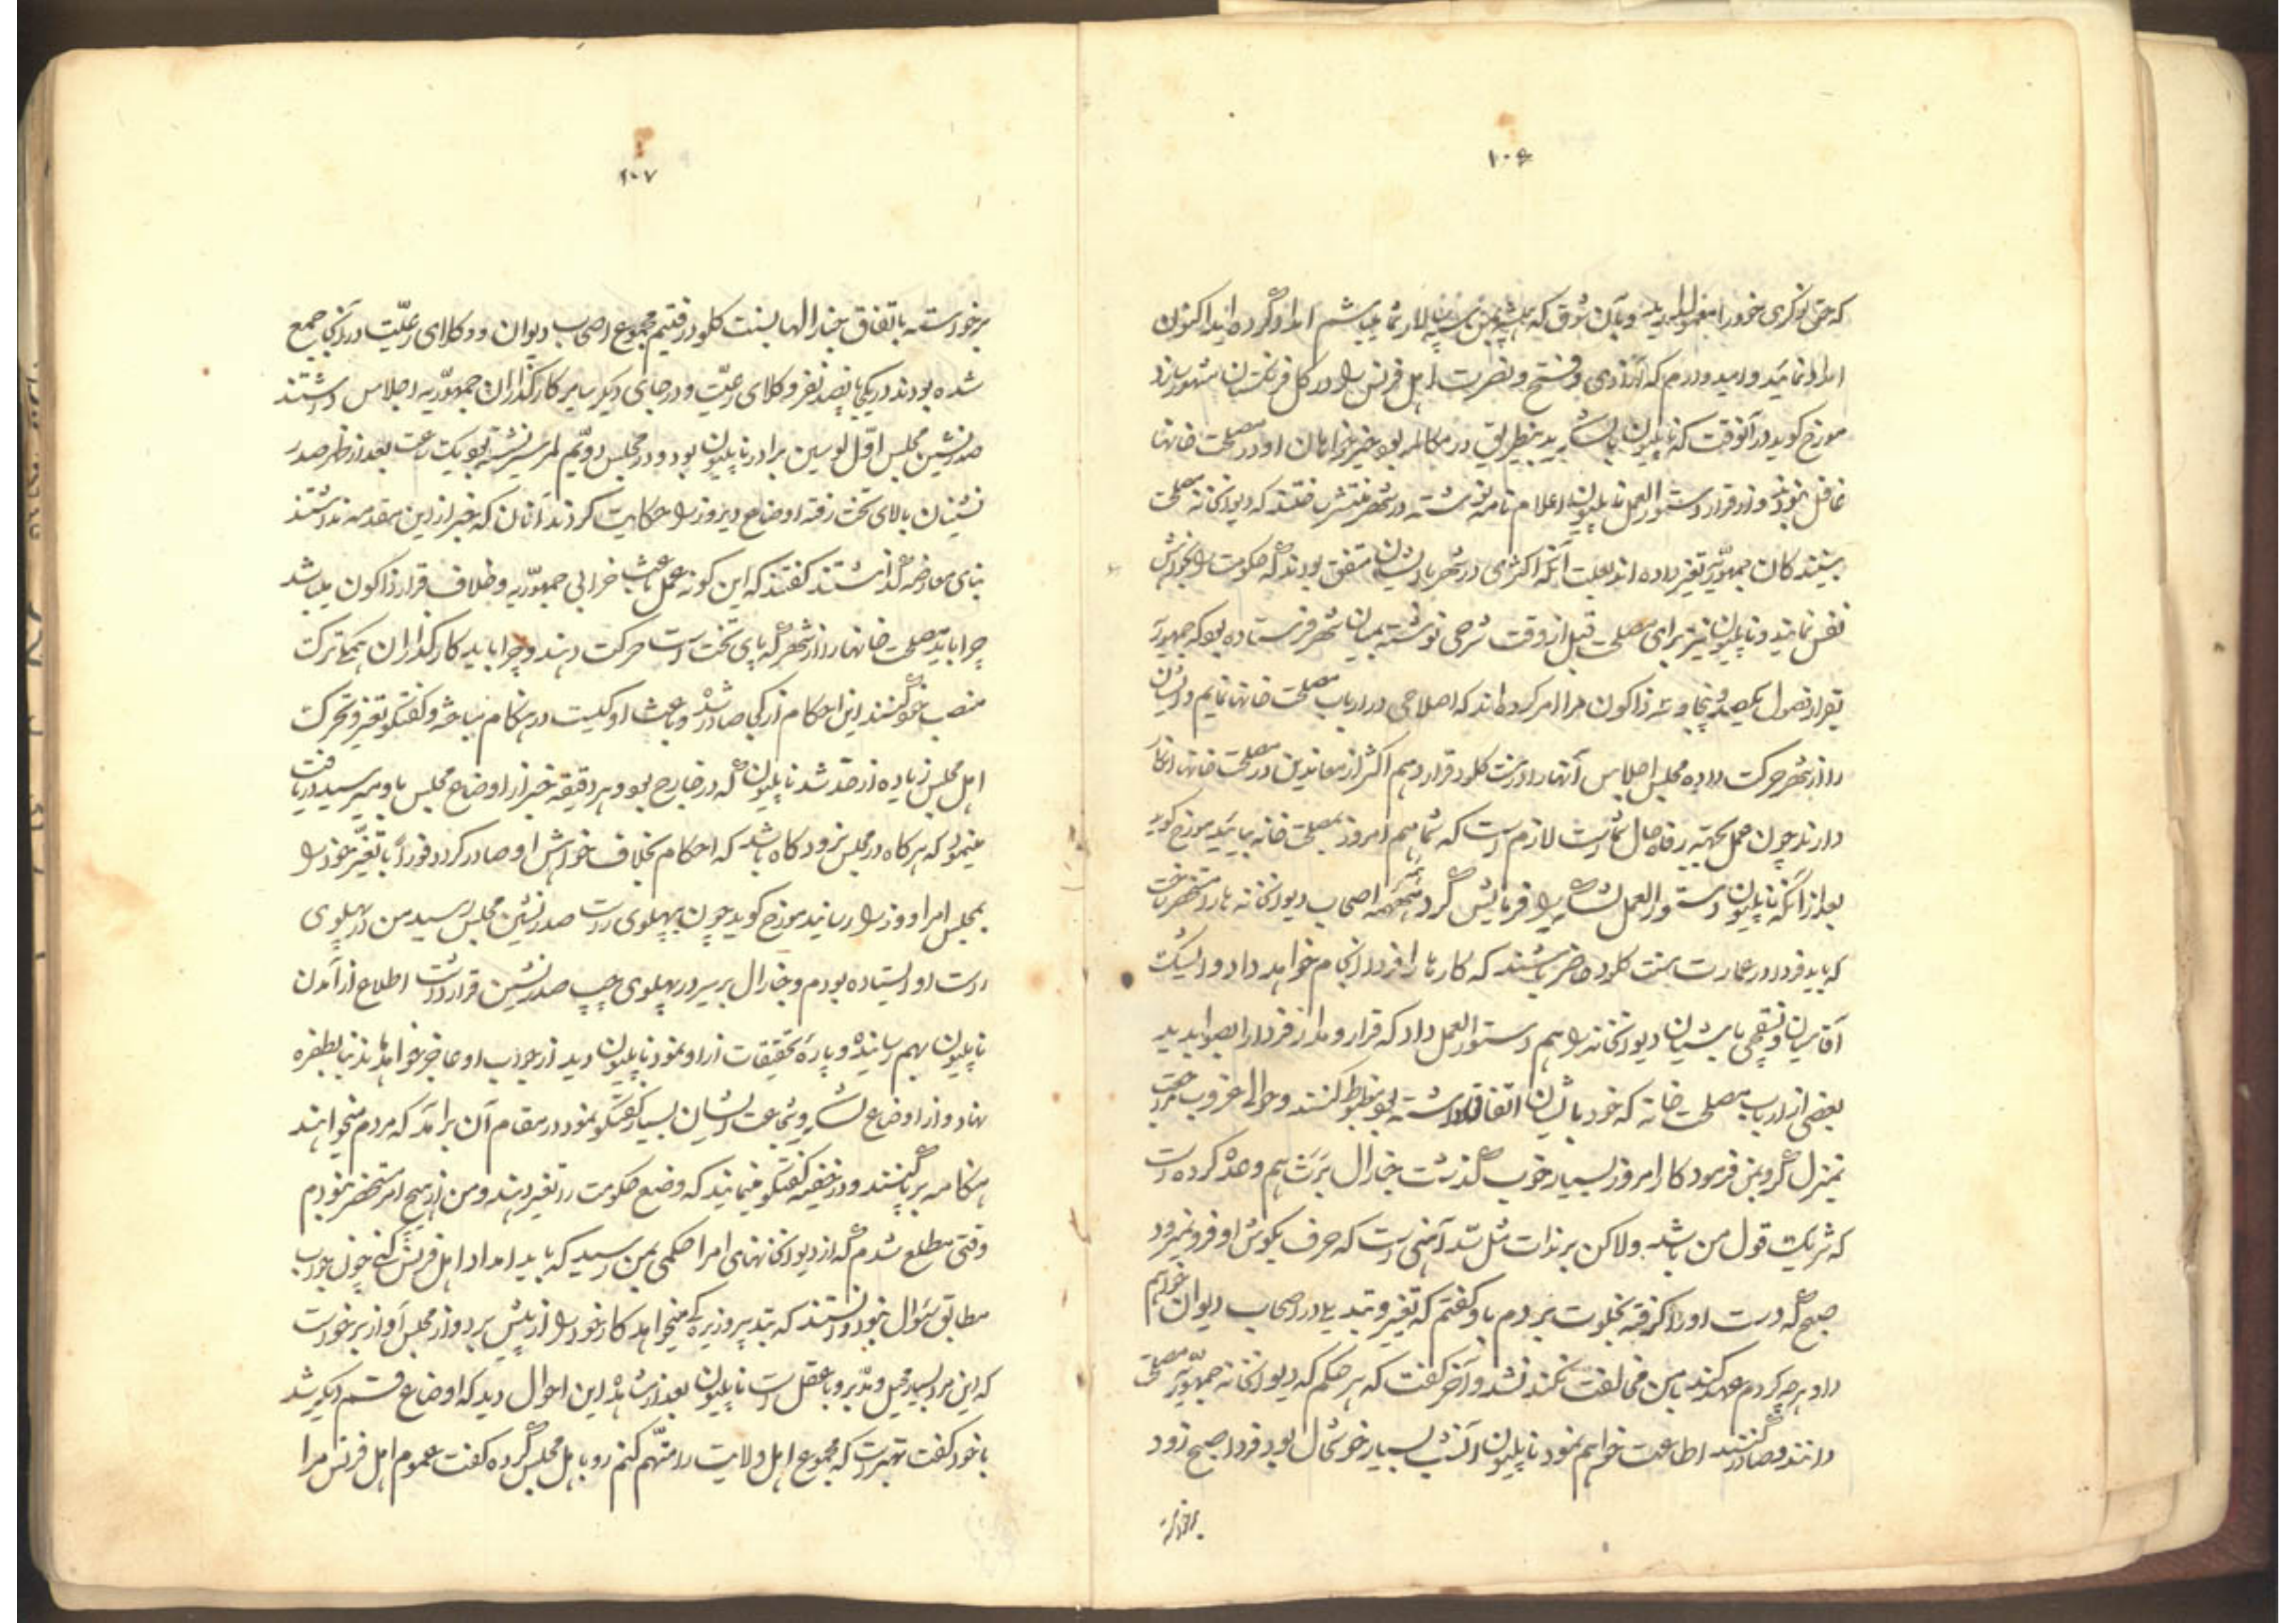 ۱۰۶
که حق نوکری خود را معمول دارید و بآن شوق که همیشه بمن که سپهسالار شما میباشم امداد کرده‌اید اکنون
امداد نمائید و امیدوارم که آزادی و فتح و نصرت اهل فرنس را در کل فرنکستان مشهور سازد
مورخ کوید در آنوقت که ناپلیون با لشکریان بدینطریق در مکالمه بود خیرخواهان او در مصلحت خانها
غافل نبودند و از قرار دستورالعمل ناپلیون اعلام نامه نوشته در شهر منتشر ساختند که دیوانخانه مصلحت
بینند کان جمهوریه تغیر داده اند بعلت آنکه اکثری در شهر با ایشان متفق بودند که حکومت را بخواهش
نفس نمایند و ناپلیون نیز برای مصلحت قبل از وقت شرحی نوشته بمیان شهر فرستاده بود که جمهوریه
بقرار فصول یکصد و پنجاه و سه زاکون مرا امر کرده‌اند که اصلاحی در ارباب مصلحت خانها نمایم و ایشان
را از شهر حرکت داده مجلس اجلاس آنها را در سنت کلود قرار دهم اکثر از معاندین در مصلحت خانها انکار
دارند چون عمل بجهته رفاه حال شماست لازم است که شما هم امروز بمصلحت خانه بیائید مورخ کوید
بعد از آنکه ناپلیون دستورالعمل لشکر را فرمایش کرد همه اصحاب دیوانخانه ها را مستحضر ساخت
که باید فردا در عمارت سنت کلود حاضر باشند که کارها را فردا انجام خواهد داد و ایشیک
آقاسیان و نسقچی باشیان دیوانخانه را هم دستورالعمل داد که قرار و مدار فردا را بصوابدید
بعضی از ارباب مصلحت خانه که خود با ایشان اتفاق داشته بود مضبوط کنند و حوالی غروب مراجعت
بمنزل کرد و بمن فرمود کار امروز بسیار خوب گذشت جنارال برنت هم وعده کرده است
که شریک قول من باشد ولاکن برندات مثل سد آهنی است که حرف بکوش او فرو نمیرود
صبح که دست او را کرفته بخلوت بردم باو کفتم که تغیر و تبدیلی در اصحاب دیوان خواهم
داد هرچه کردم عهد کند با من مخالفت نکند نشد و آخر کفت که هر حکم که دیوانخانه جمهوریه مصلحت
دانند و صادر کنند اطاعت خواهم نمود ناپلیون آنشب بسیار خوشحال بود فردا صبح زود
برخواسته
۱۰۷
برخواسته باتفاق جنارالها بسنت کلود رفتیم مجموع اصحاب دیوان و وکلای رعیّت در آنجا جمع
شده بودند در یکجا پانصد نفر وکلای رعیّت و در جای دیکر سایر کارکذاران جمهوریه اجلاس داشتند
صدرنشین مجلس اوّل لوسین برادر ناپلیون بود و در مجلس دویّم لمرسیر نشسته بود یکساعت بعد از ظهر صدر
نشینان بالای تخت رفته اوضاع دیروز را حکایت کردند آنان که خبر از این مقدمه نداشتند
بنای معارضه گذاشتند کفتند که این کونه عمل باعث خرابی جمهوریه و خلاف قرار زاکون میباشد
چرا باید مصلحت خانها را از شهر که پای تخت است حرکت دهند و چرا باید کارکذاران همکی ترک
منصب خود کنند این احکام از کی صادر شده و باعث او کیست در هنکام مباحثه و کفتکو تغیر و تحرک
اهل مجلس زیاده از حد شد ناپلیون که در خارج بود و هر دقیقه خبر از اوضاع مجلس باو میرسید دریافت
مینمود که هرکاه در مجلس نرود کاه باشد که احکام بخلاف خواهش او صادر کردد فوراً با تغیّر خود را
بمجلس امرا و وزرا رسانید مورخ کوید چون بپهلوی راست صدرنشین مجلس رسید من در پهلوی
راست او ایستاده بودم و جنارال بربیر در پهلوی چپ صدرنشین قرار داشت اطلاع از آمدن
ناپلیون بهم رسانیده و پاره تحقیقات از او نمود ناپلیون دید از جواب او عاجز خواهد ماند بنا بطفره
نهاد و از اوضاع لشکر و شجاعت ایشان بسیار کفتکو نمود در مقام آن برآمد که مردم میخواهند
هنکامه برپا کنند و در خفیه کفتکو مینمایند که وضع حکومت را تغیر دهند و من از هیچ امر مستحضر نبودم
وقتی مطلع شدم که از دیوانخانهای امرا حکمی بمن رسید که باید امداد اهل فرنس کنی چون جواب
مطابق سؤال نبود دانستند که بتدبیر و زیرکی میخواهد کار خود را از پیش برد و از مجلس آواز برخواست
که این مرد بسیار محیل و مدبر و با عقل است ناپلیون بعد از مشاهده این احوال دید که اوضاع قسم دیکر شد
با خود کفت بهتر است که مجموع اهل ولایت را متهم کنم رو باهل مجلس کرده کفت عموم اهل فرنس مرا